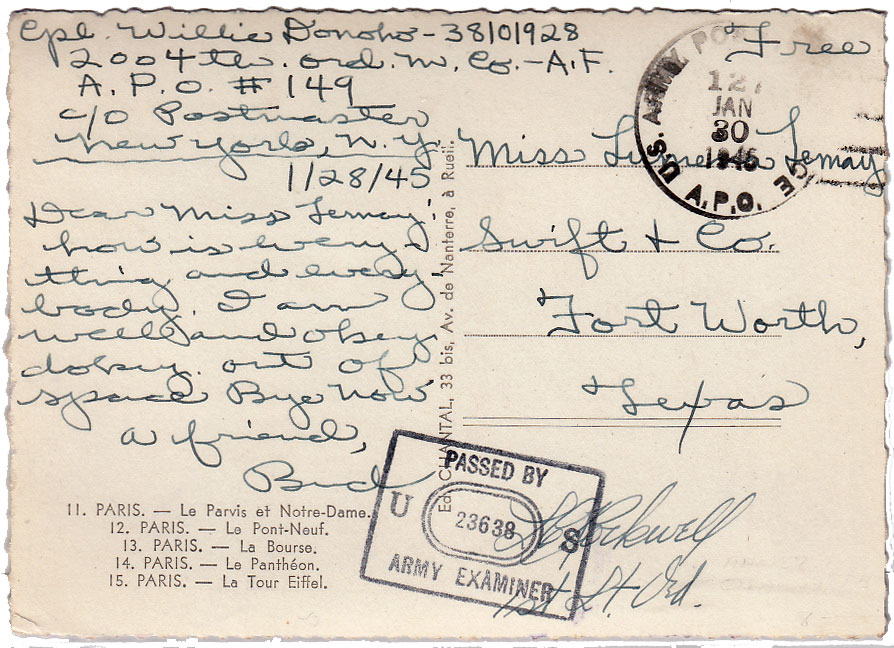 Cpl. Willie Donoho - 38101928
2004th. ord. m. Co. - A.F.
A.P.O. # 149
c/o Postmaster
New York, N.Y.
1/28/45
Dear Miss Lemay:
how is every-
thing and every
body. I am
well and okey
dokey. out of
space Bye Now
a friend,
Bud
11. PARIS. — Le Parvis et Notre-Dame.
12. PARIS. — Le Pont-Neuf.
13. PARIS. — La Bourse.
14. PARIS. — Le Panthéon.
15. PARIS. — La Tour Eiffel.
Ed. CHANTAL, 33 bis, Av. de Nanterre, à Rueil.
Free
U.S. ARMY
12
JAN
30
1945
A.P.O.
Miss Lemay
Swift & Co.
Fort Worth,
Texas
PASSED BY
U 23638 S
ARMY EXAMINER
Rockwell
1st Lt. Ord.